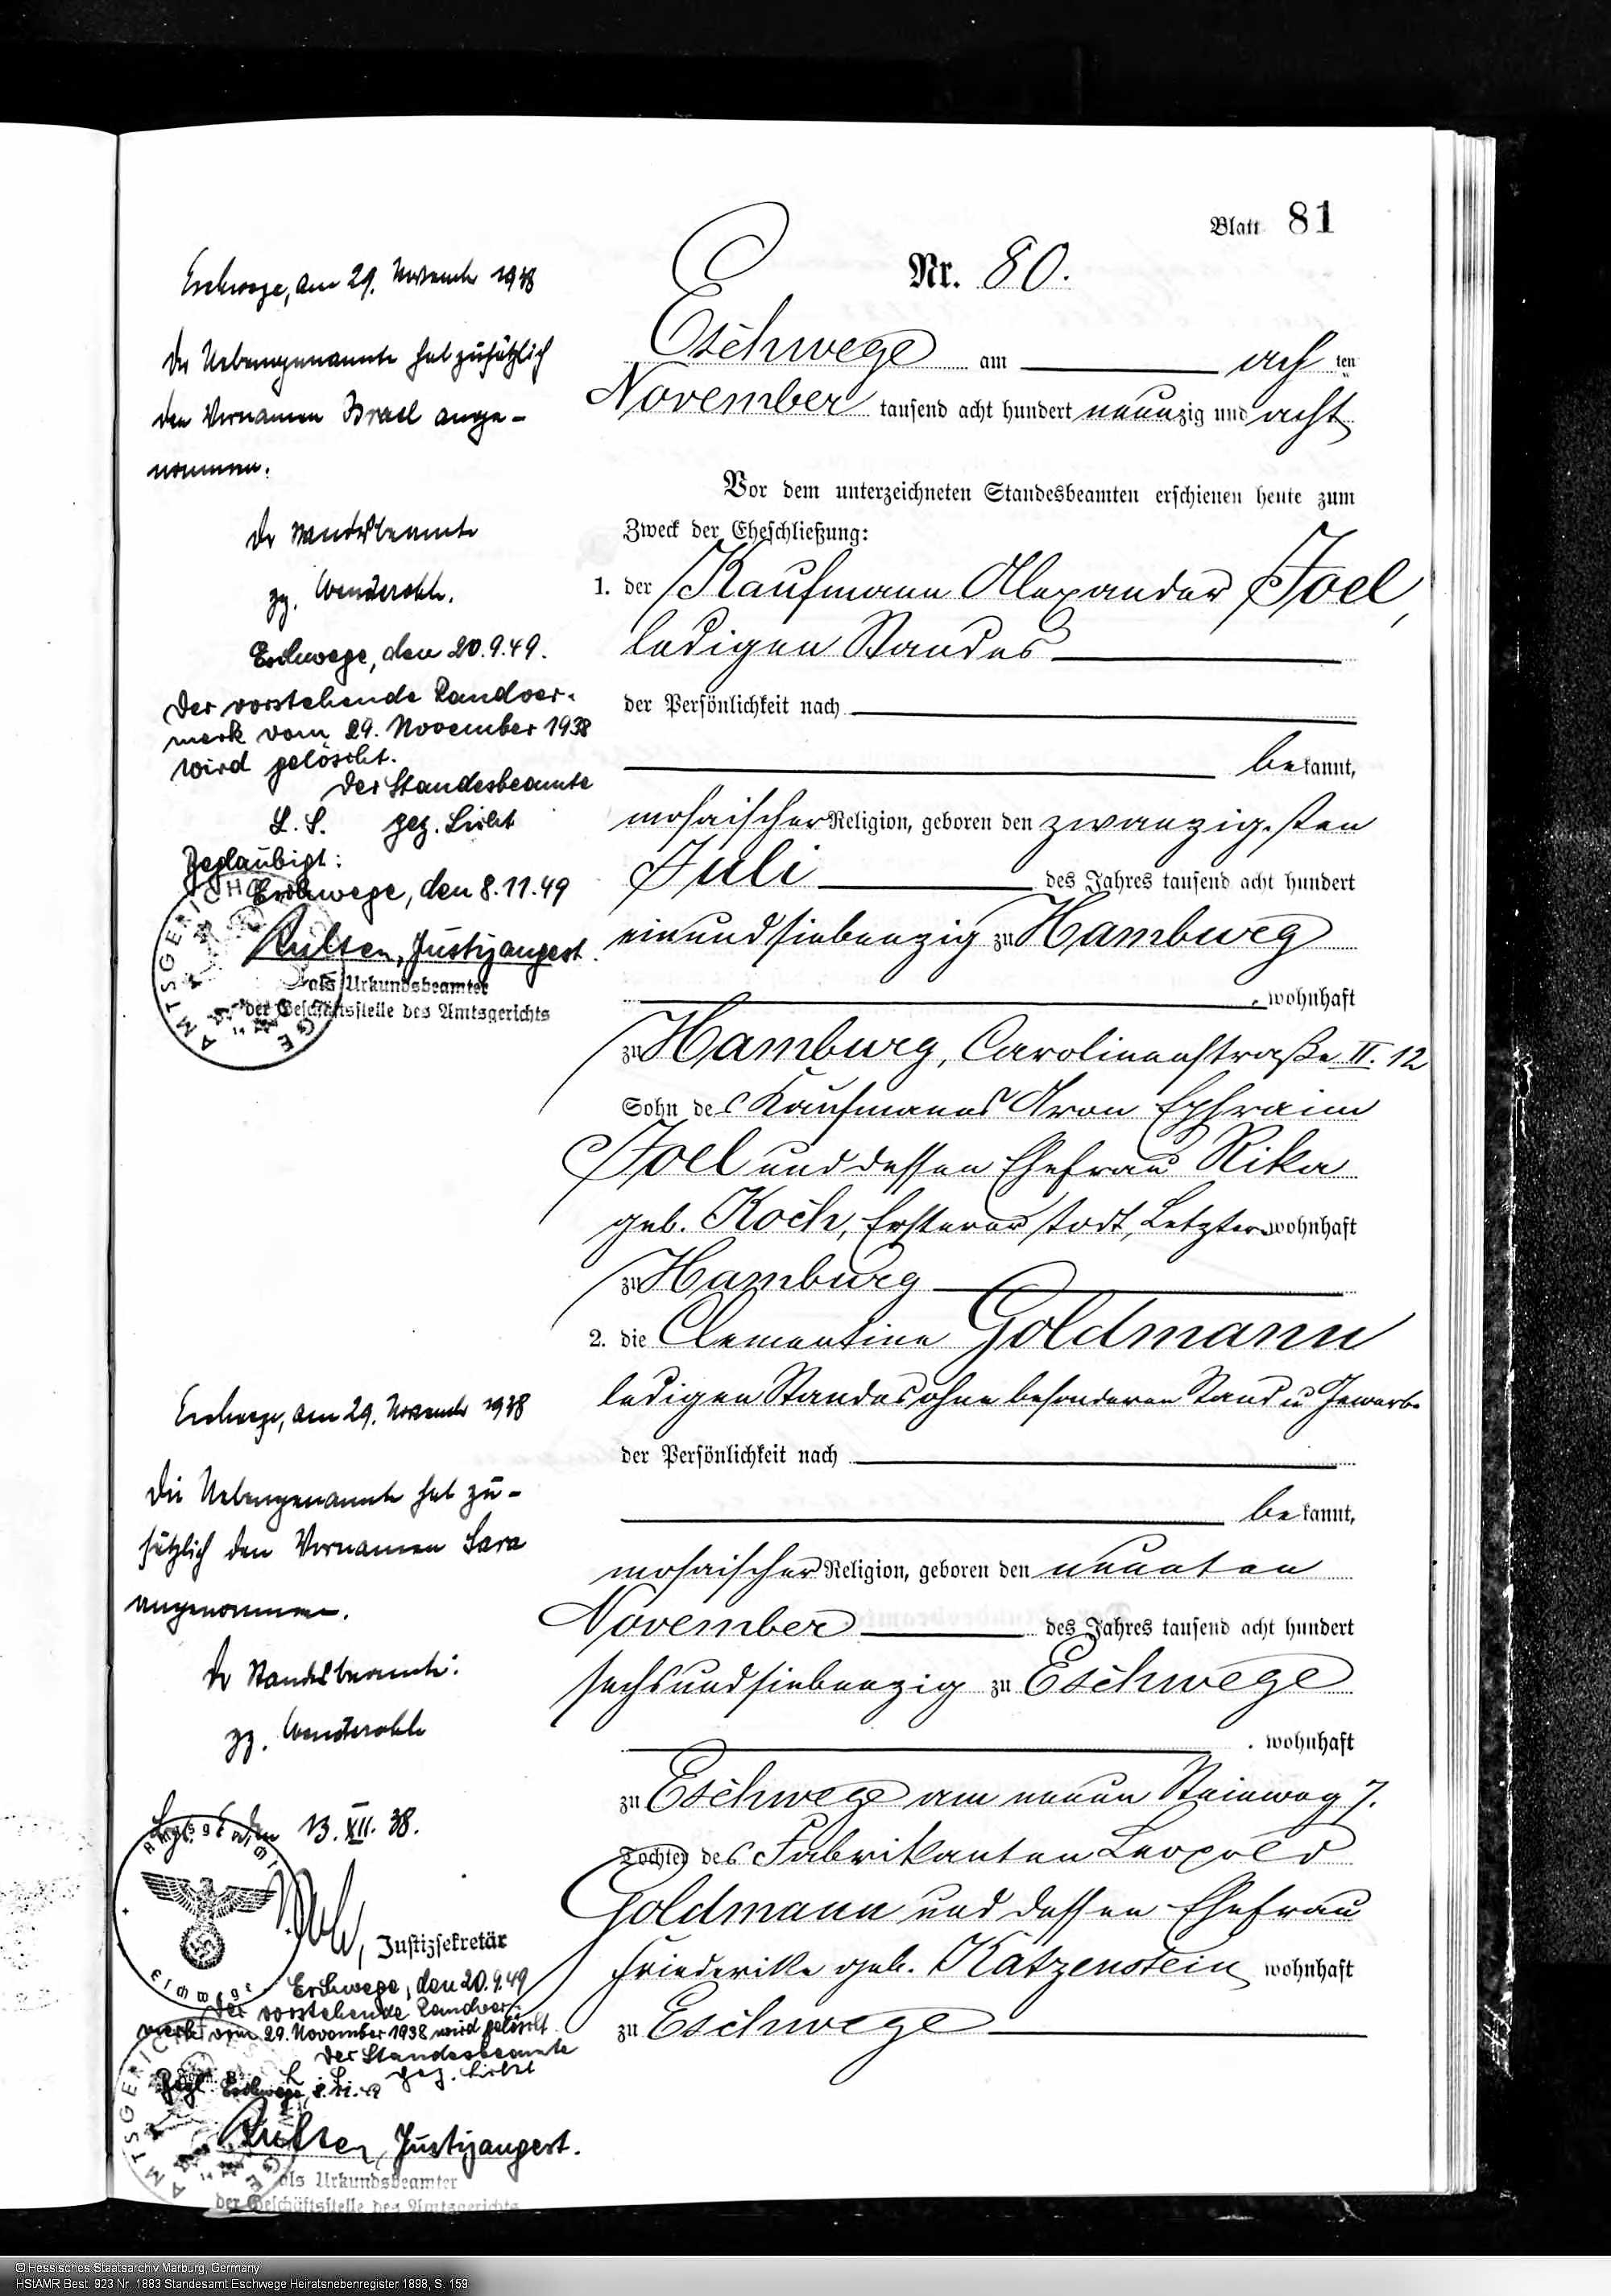 Blatt 81
Nr. 80.
Eschwege am achten
November tausend acht hundert neunzig und acht
Vor dem unterzeichneten Standesbeamten erschienen heute zum
Zweck der Eheschließung:
1. der Kaufmann Alexander Joel,
ledigen Standes
der Persönlichkeit nach
bekannt,
mosaischer Religion, geboren den zwanzigsten
Juli des Jahres tausend acht hundert
einundsiebenzig zu Hamburg
, wohnhaft
zu Hamburg, Carolinenstraße II. 12
Sohn des Kaufmanns Aron Ephraim
Joel und dessen Ehefrau Rika
geb. Koch, Ersterer todt, Letztere wohnhaft
zu Hamburg
2. die Clementine Goldmann
ledigen Standes ohne besonderen Stand u Gewerbe
der Persönlichkeit nach
bekannt,
mosaischer Religion, geboren den neunten
November des Jahres tausend acht hundert
sechsundsiebenzig zu Eschwege
, wohnhaft
zu Eschwege am neuen Steinweg 7.
Tochter des Fabrikanten Leopold
Goldmann und dessen Ehefrau
Friederike geb. Katzenstein wohnhaft
zu Eschwege
Eschwege, am 29. November 1938
Der Nebengenannte hat zusätzlich
den Vornamen Israel ange-
nommen.
Der Standesbeamte
gz. Wenderoth.
Eschwege, den 20.9.49.
Der vorstehende Randver-
merk vom 29. November 1938
wird gelöscht.
Der Standesbeamte
L. S. gez.
Beglaubigt:
Eschwege, den 8.11.49
Justizangest.
als Urkundsbeamter
der Geschäftsstelle des Amtsgerichts
AMTSGERICHT
Eschwege, am 29. November 1938
Die Nebengenannte hat zu-
sätzlich den Vornamen Sara
angenommen.
Der Standesbeamte:
gz. Wenderoth
13. XII. 38.
Amtsgericht
Eschwege
Justizsekretär
Eschwege, den 20.9.49
Der vorstehende Randver-
merk vom 29. November 1938 wird gelöscht
Der Standesbeamte
L. S. gez.
Begl. Eschwege, 8.11.49
Justizangest.
als Urkundsbeamter
der Geschäftsstelle des Amtsgerichts
AMTSGERICHT
© Hessisches Staatsarchiv Marburg, Germany
HStAMR Best. 923 Nr. 1883 Standesamt Eschwege Heiratsnebenregister 1898, S. 159